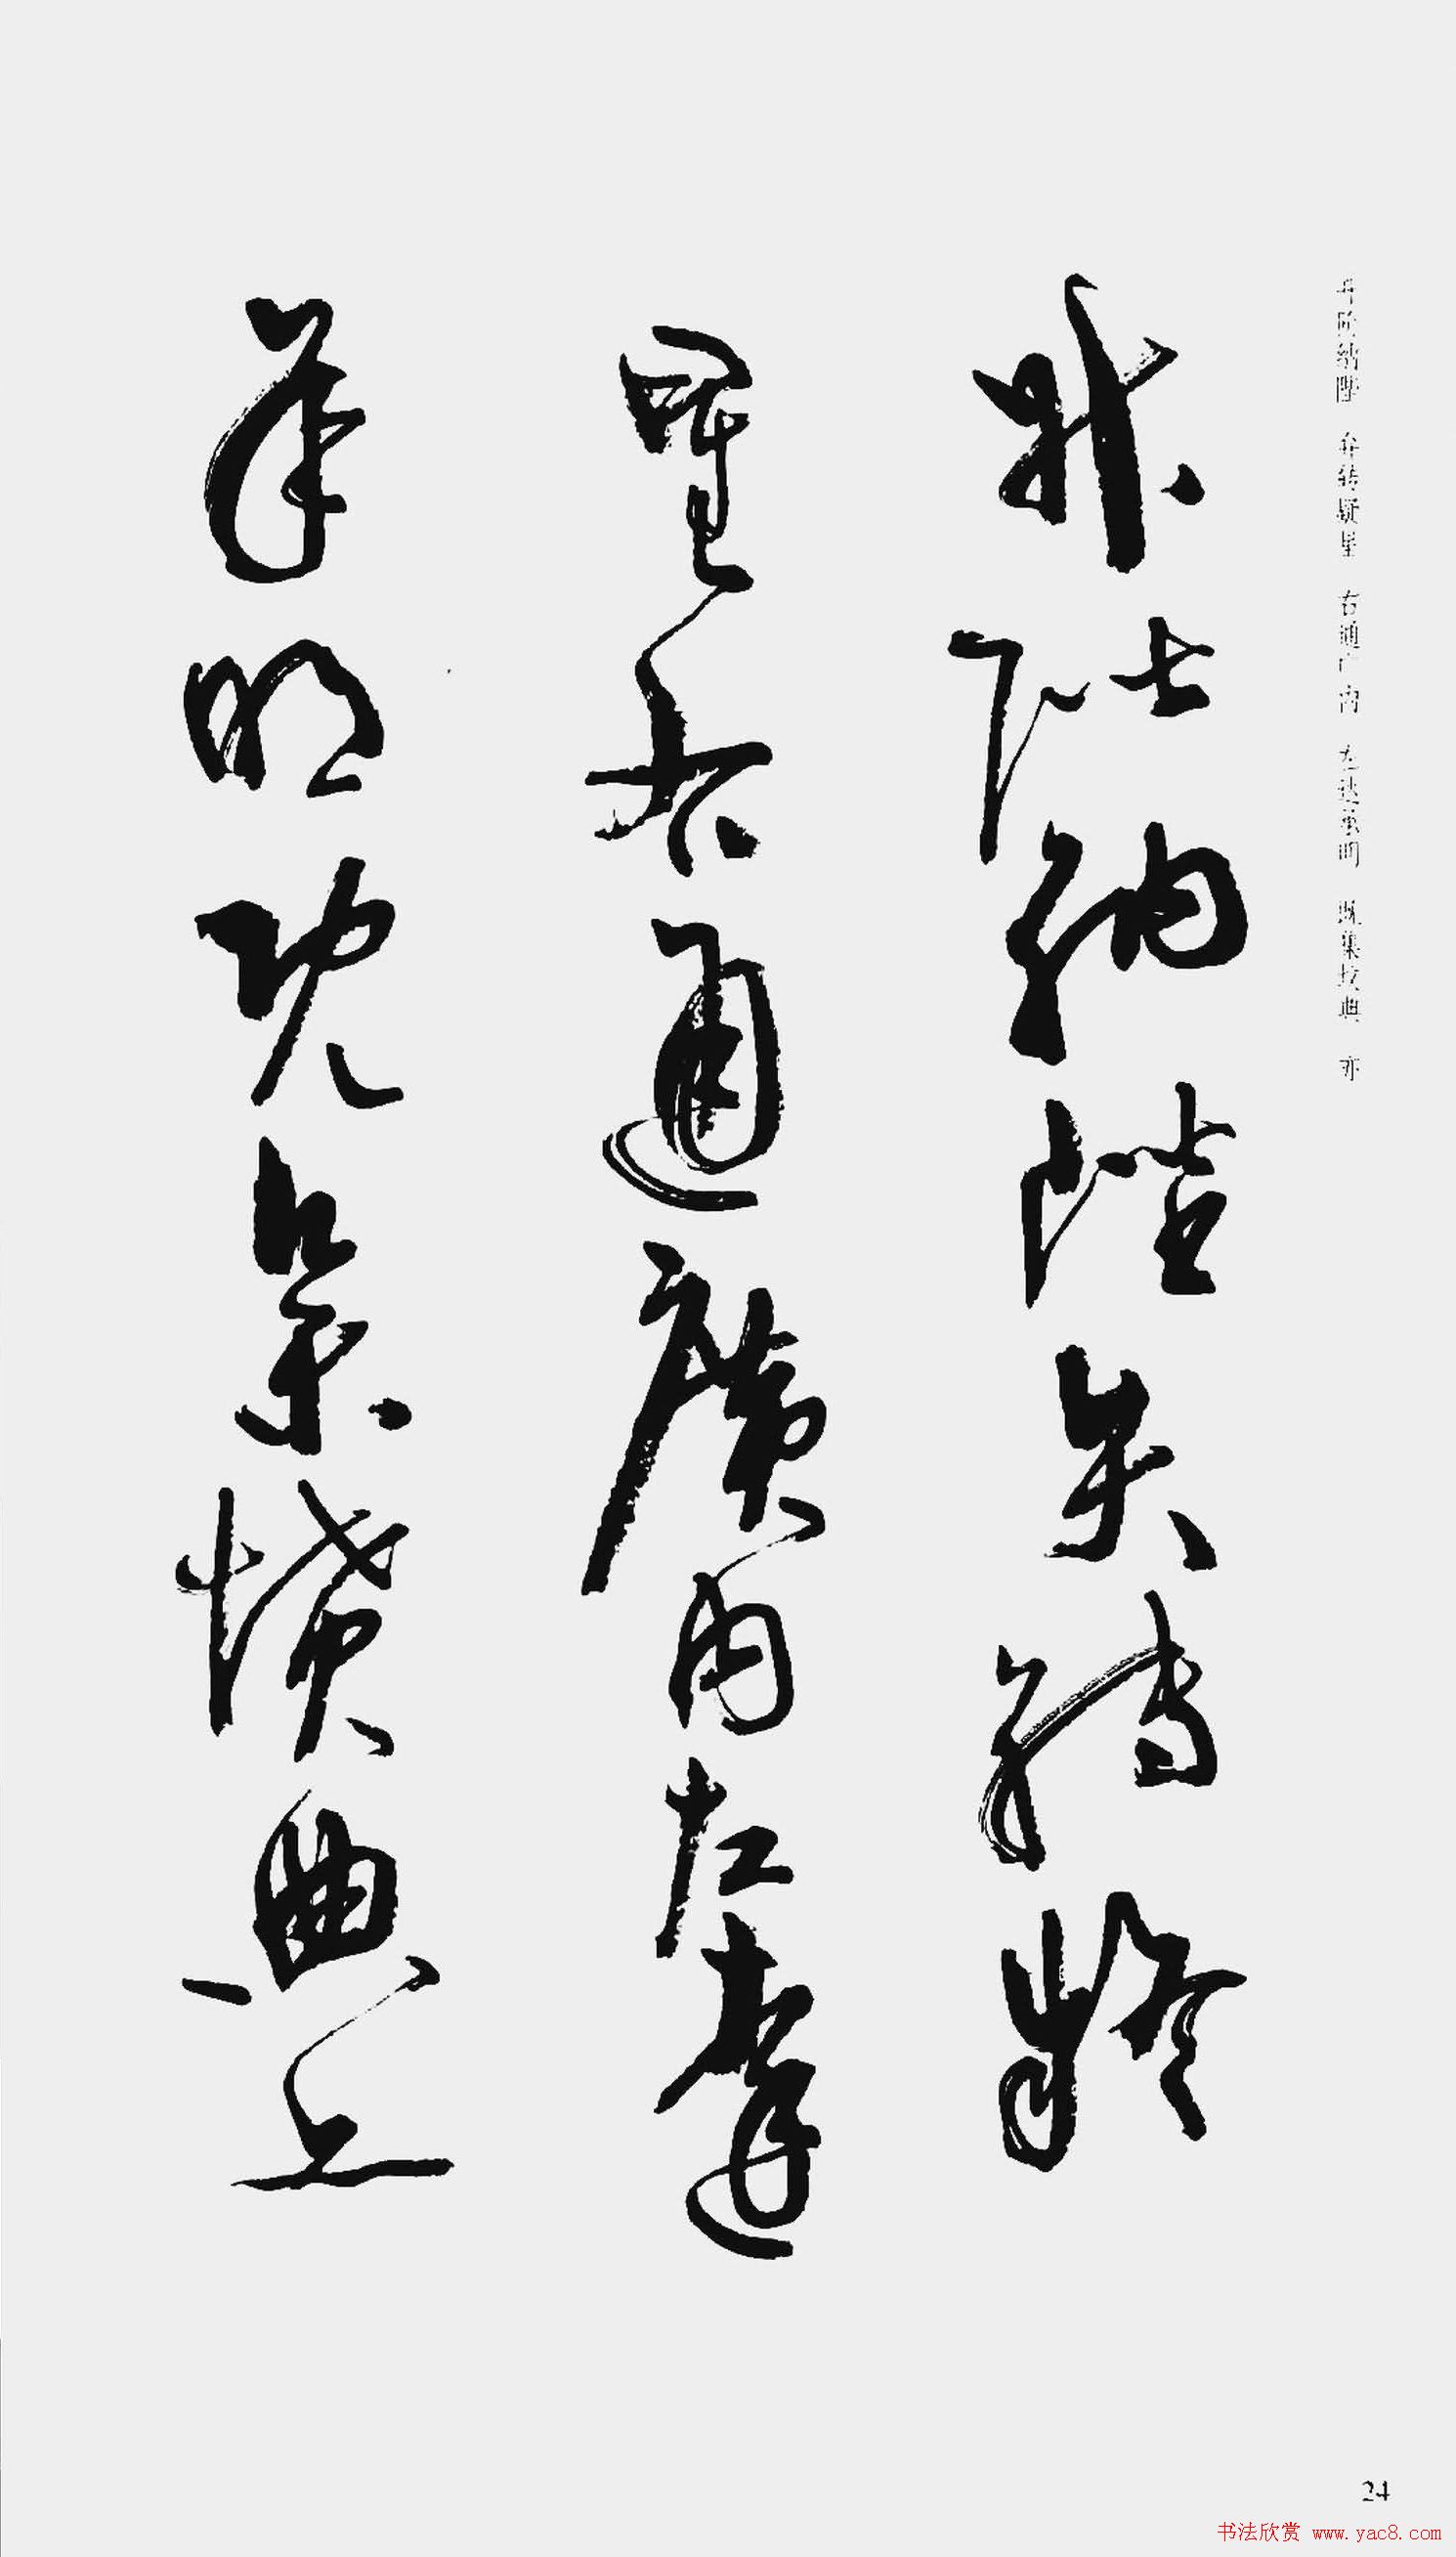 升阶纳陛 弁转疑星 右通广内 左达承明 既集坟典 亦
升階納陛弁轉疑
星右通廣内左達
承明既集墳典亦
24
书法欣赏 www.yac8.com